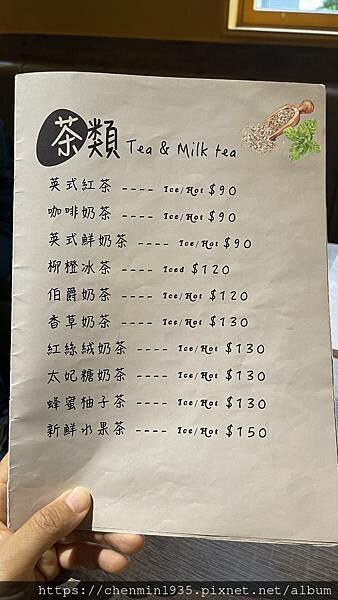 茶類 Tea & Milk tea
英式紅茶 ---- Ice/Hot $90
咖啡奶茶 ---- Ice/Hot $90
英式鮮奶茶 ---- Ice/Hot $90
柳橙冰茶 ---- Iced $120
伯爵奶茶 ---- Ice/Hot $120
香草奶茶 ---- Ice/Hot $130
紅絲絨奶茶 ---- Ice/Hot $130
太妃糖奶茶 ---- Ice/Hot $130
蜂蜜柚子茶 ---- Ice/Hot $130
新鮮水果茶 ---- Ice/Hot $150
https://chenmin1935.pixnet.net/album